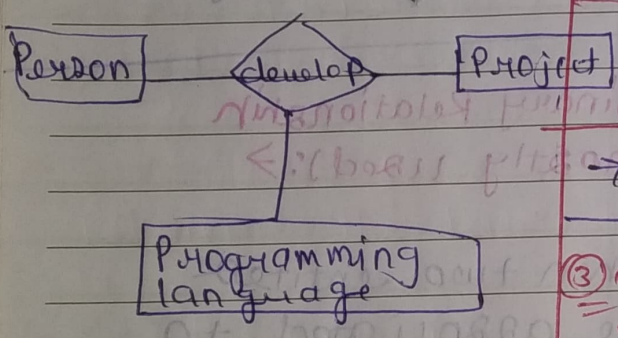 Person develop Project
Programming
language
③